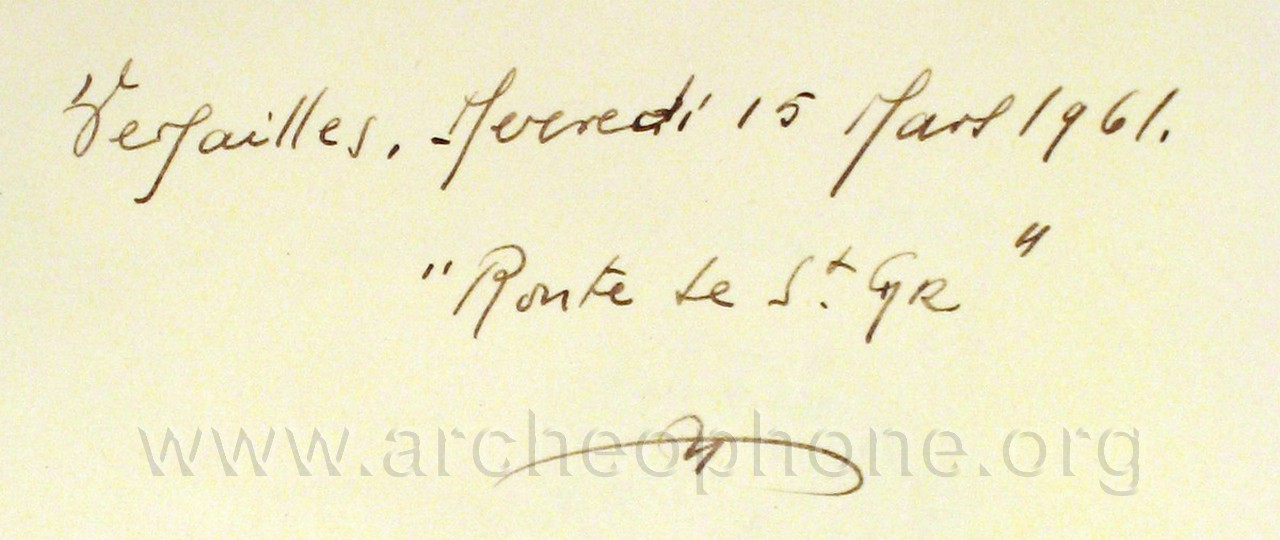 Versailles, Mercredi 15 Mars 1961.
"Route de St. Cyr"
www.archeophone.org